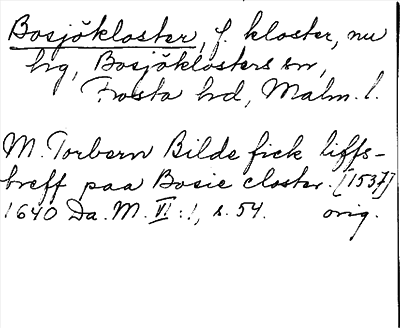 Bosjökloster, f. kloster, nu
hrg, Bosjöklosters sn,
Frosta hd, Malm. l.
M. Torbern Bilde fick liffs-
breff paa Bosie closter. [1537]
1640 Da. M. VI:1, s. 54. orig.